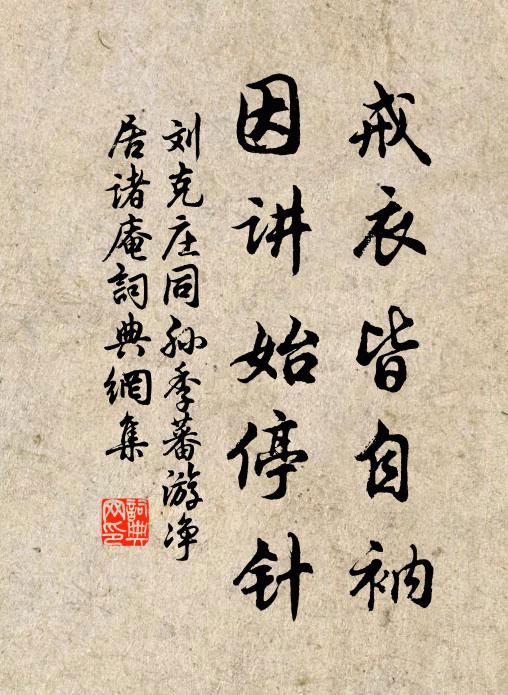 戒衣皆自衲
因讲始停针
刘克庄同孙季蕃游净
居诸庵詞典網集
詞典网印